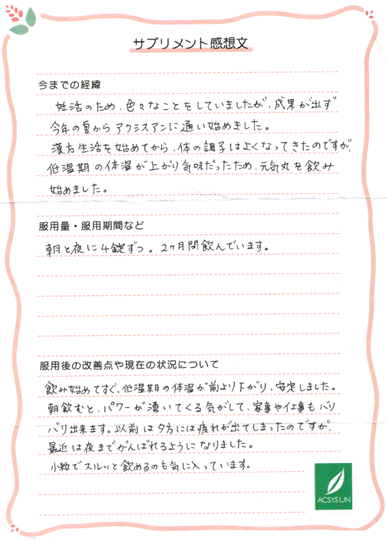 サプリメント感想文
今までの経緯
妊活のため、色々なことをしていましたが、成果が出ず
今年の夏からアクシスアンに通い始めました。
漢方生活を始めてから、体の調子はよくなってきたのですが、
低温期の体温が上がり気味だったため、元気丸を飲み
始めました。
服用量・服用期間など
朝と夜に4錠ずつ。2ヶ月間飲んでいます。
服用後の改善点や現在の状況について
飲み始めてすぐ、低温期の体温が前より下がり、安定しました。
朝飲むと、パワーが湧いてくる気がして、家事や仕事もバリ
バリ出来ます。以前は夕方には疲れが出てしまったのですが、
最近は夜までがんばれるようになりました。
小粒でスルッと飲めるのも気に入っています。
ACSYSUN